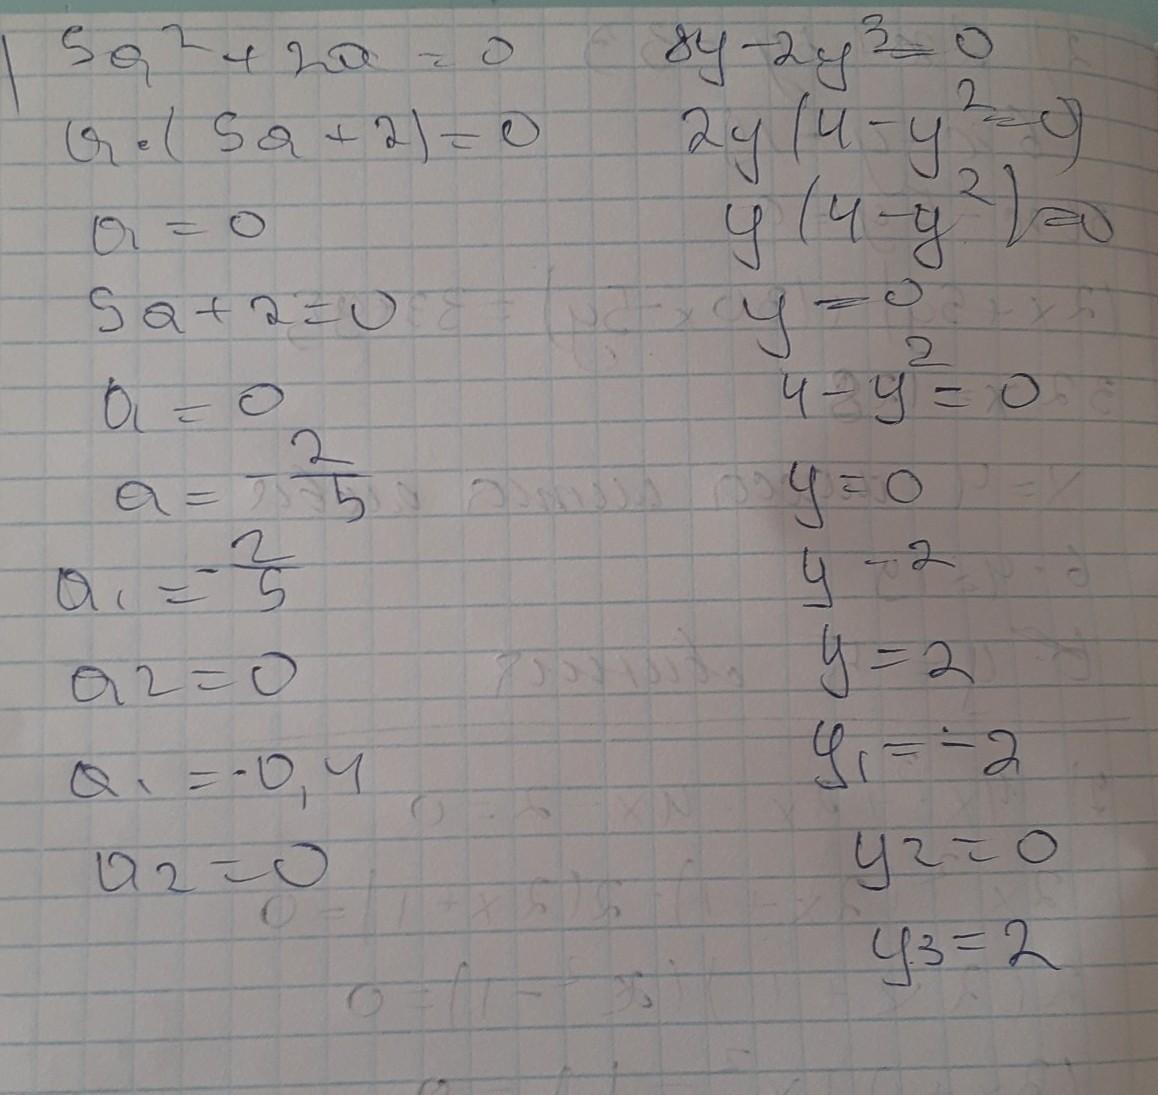 5a² + 2a = 0
a·(5a + 2) = 0
a = 0
5a + 2 = 0
a = 0
a = -2/5
a1 = -2/5
a2 = 0
a1 = -0,4
a2 = 0
8y - 2y³ = 0
2y (4 - y² = 0)
y (4 - y²) = 0
y = 0
4 - y² = 0
y = 0
y - 2
y = 2
y1 = -2
y2 = 0
y3 = 2